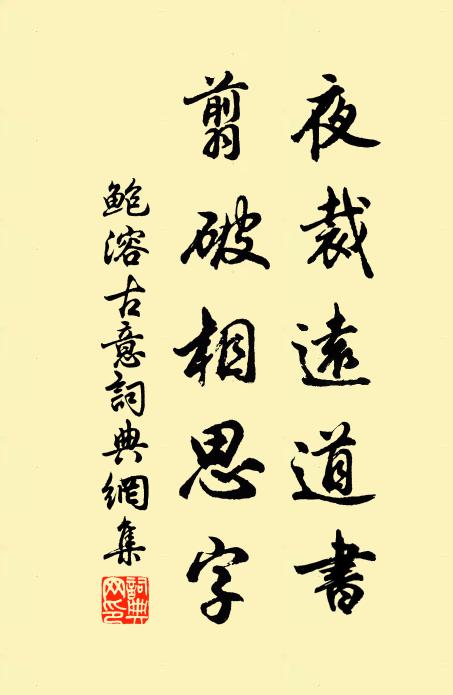 夜裁遠道書
翦破相思字
鲍溶古意詞典網集
詞典网印